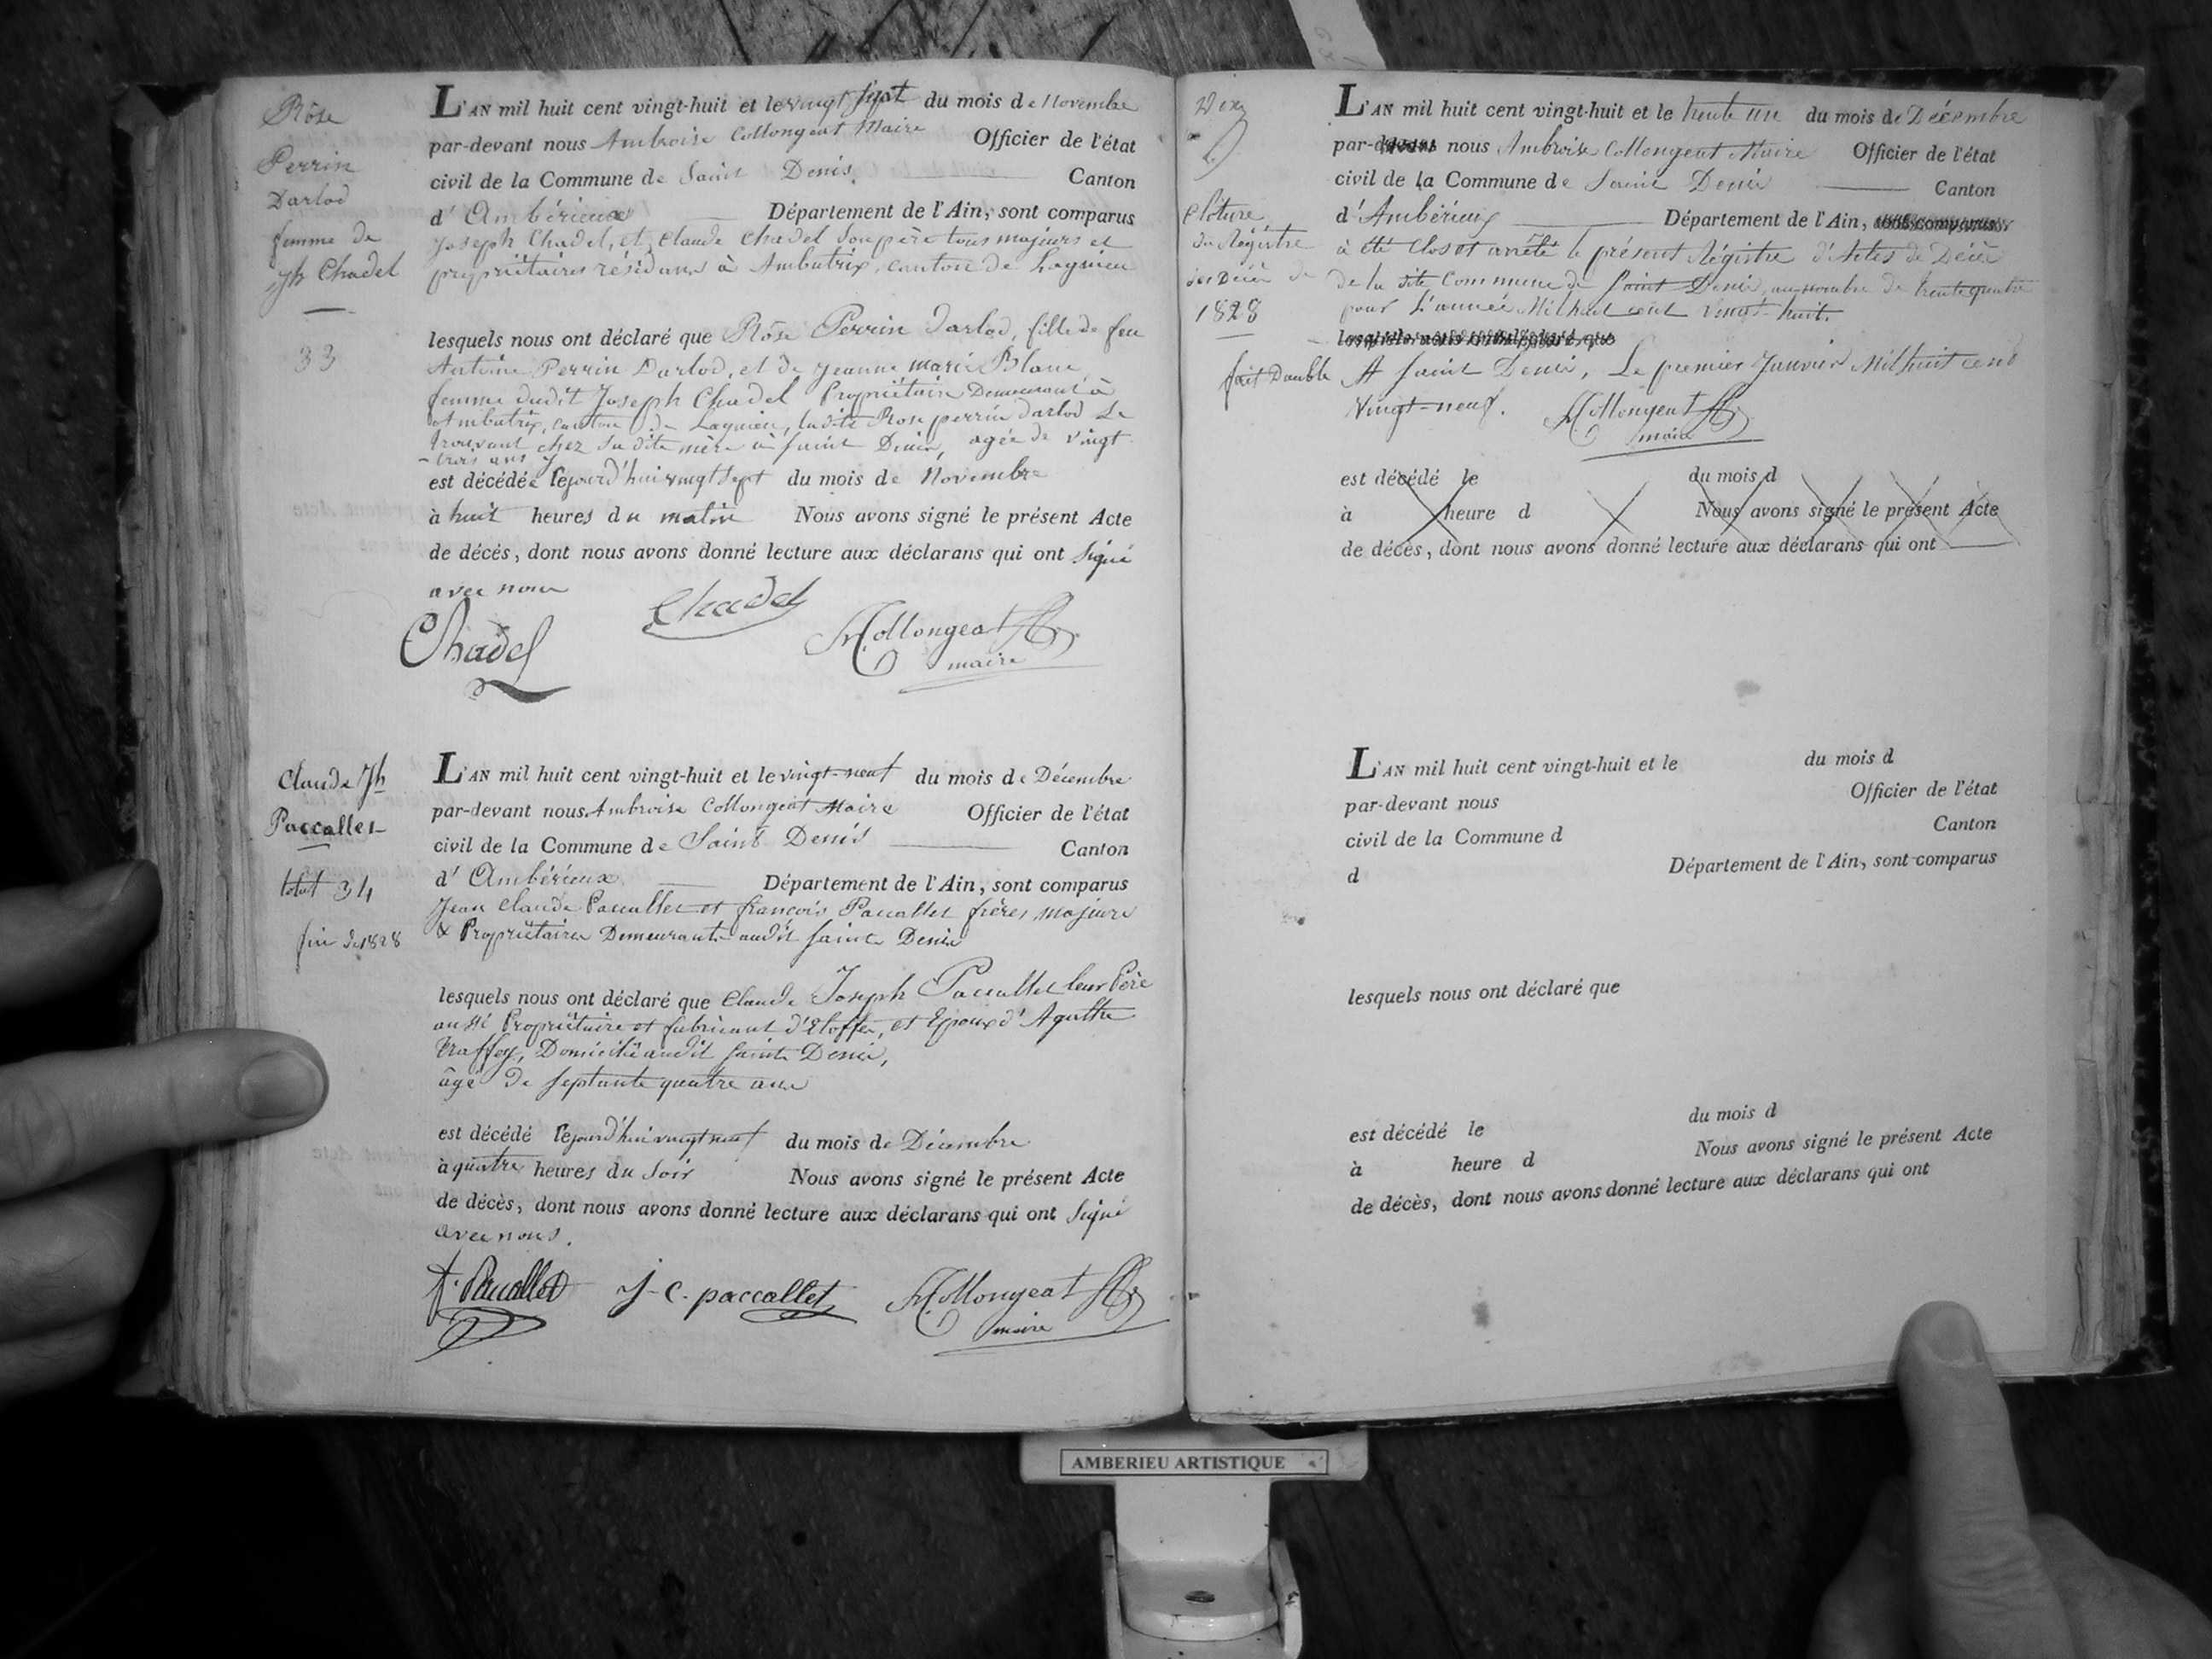 Rôse
Perrin
Darlod
femme de
Jh Chadel
33
L'AN mil huit cent vingt-huit et le vingt sept du mois de Novembre
par-devant nous Ambroise Collongeat Maire Officier de l'état
civil de la Commune de Saint Denis Canton
d'Ambérieux Département de l'Ain, sont comparus
Joseph Chadel, et Claude Chadel son père tous majeurs et
propriétaires résidans à Ambutrix, canton de Lagnieu
lesquels nous ont déclaré que Rôse Perrin Darlod, fille de feu
Antoine Perrin Darlod, et de Jeanne marie Blanc
femme dudit Joseph Chadel Propriétaire Demeurant à
Ambutrix, canton de Lagnieu, ladite Rose perrin darlod Se
trouvant chez sa dite mère à Saint Denis, agée de vingt
-trois ans
est décédée cejourd'hui vingt Sept du mois de Novembre
à huit heures du matin Nous avons signé le présent Acte
de décès, dont nous avons donné lecture aux déclarans qui ont Signé
avec nous
Chadel
Chadel
Collongeat
maire
Claude Jh
Paccallet
total 34
fin de 1828
L'AN mil huit cent vingt-huit et le vingt-neuf du mois de Décembre
par-devant nous Ambroise Collongeat Maire Officier de l'état
civil de la Commune de Saint Denis Canton
d'Ambérieux Département de l'Ain, sont comparus
Jean Claude Paccallet et françois Paccallet frères majeurs
& Propriétaires Demeurants audit Saint Denis
lesquels nous ont déclaré que Claude Joseph Paccallet leur Père
aussi Propriétaire et fabricant d'Etoffes, et Epoux d'Agathe
Domicilié audit Saint Denis,
âgé de septante quatre ans
est décédé cejourd'hui vingt neuf du mois de Décembre
à quatre heures du Soir Nous avons signé le présent Acte
de décès, dont nous avons donné lecture aux déclarans qui ont Signé
avec nous.
f. Paccallet
J-C. paccallet
Collongeat
maire
Cloture
du Régistre
des Décès de
1828
fait Double
L'AN mil huit cent vingt-huit et le trente un du mois de Décembre
par-devant nous Ambroise Collongeat Maire Officier de l'état
civil de la Commune de Saint Denis Canton
d'Ambérieux Département de l'Ain, sont comparus
à été Clos et arrêté le présent Régistre d'Actes de Décès
de la dite Commune de Saint Denis, au nombre de trente quatre
pour L'année Mil huit cent vingt-huit.
lesquels nous ont déclaré que
A Saint Denis, Le premier Janvier Mil huit cent
Vingt-neuf.
Collongeat
maire
est décédé le du mois d
à heure d Nous avons signé le présent Acte
de décès, dont nous avons donné lecture aux déclarans qui ont
L'AN mil huit cent vingt-huit et le du mois d
par-devant nous Officier de l'état
civil de la Commune d Canton
d Département de l'Ain, sont comparus
lesquels nous ont déclaré que
est décédé le du mois d
à heure d Nous avons signé le présent Acte
de décès, dont nous avons donné lecture aux déclarans qui ont
AMBERIEU ARTISTIQUE